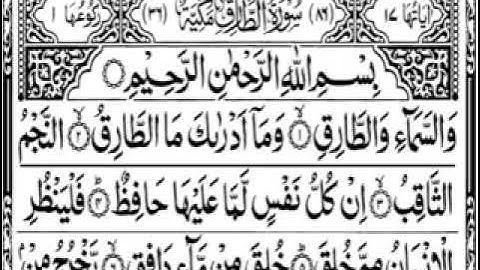 اٰيَاتُهَا ١٧ (٨٦) سُوْرَةُ الطَّارِقِ مَكِّيَّةٌ (٣٦) رُكُوْعُهَا ١
بِسْمِ اللّٰهِ الرَّحْمٰنِ الرَّحِيْمِ
وَالسَّمَآءِ وَالطَّارِقِ ۙ﴿١﴾ وَمَآ اَدْرٰىكَ مَا الطَّارِقُ ۙ﴿٢﴾ النَّجْمُ
الثَّاقِبُ ۙ﴿٣﴾ اِنْ كُلُّ نَفْسٍ لَّمَّا عَلَيْهَا حَافِظٌ ؕ﴿٤﴾ فَلْيَنْظُرِ
الْاِنْسَانُ مِمَّ خُلِقَ ؕ﴿٥﴾ خُلِقَ مِنْ مَّآءٍ دَافِقٍ ۙ﴿٦﴾ يَّخْرُجُ مِنْۢ